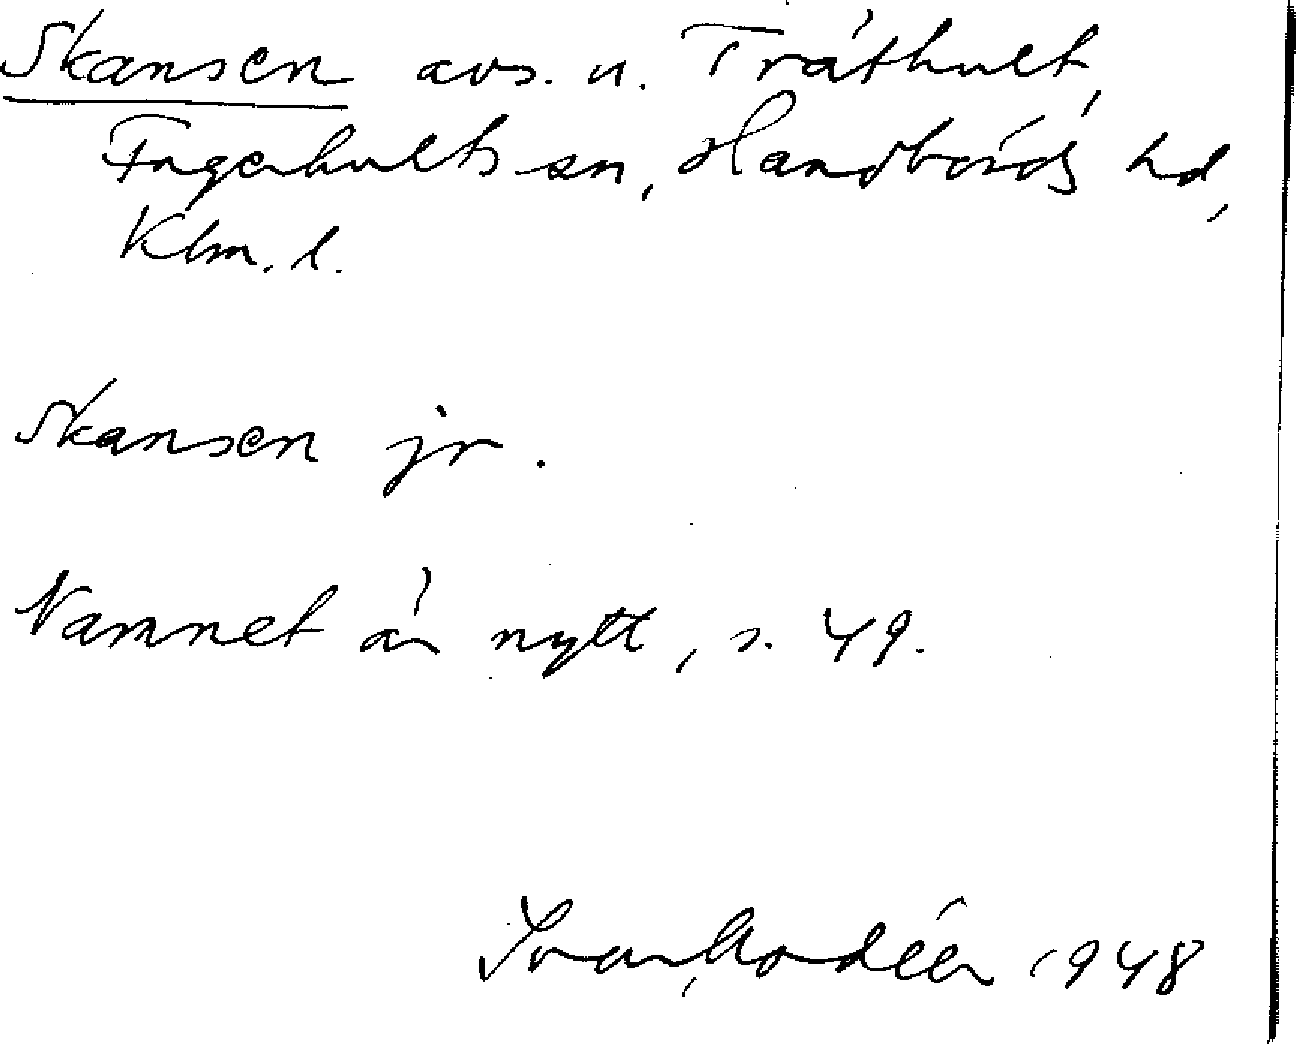 Skansen avs. u. Träthult,
Fagerhults sn, Handbörds hd,
Klm. l.
Skansen jr.
Namnet är nytt, s. 49.
Ivar Modéer 1948